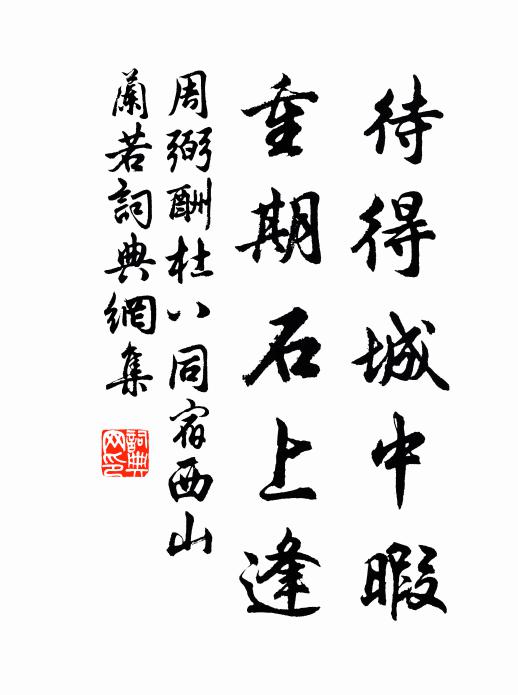 待得城中暇
重期石上逢
周弼酬杜八同宿西山
蘭若詞典網集
詞典
网印